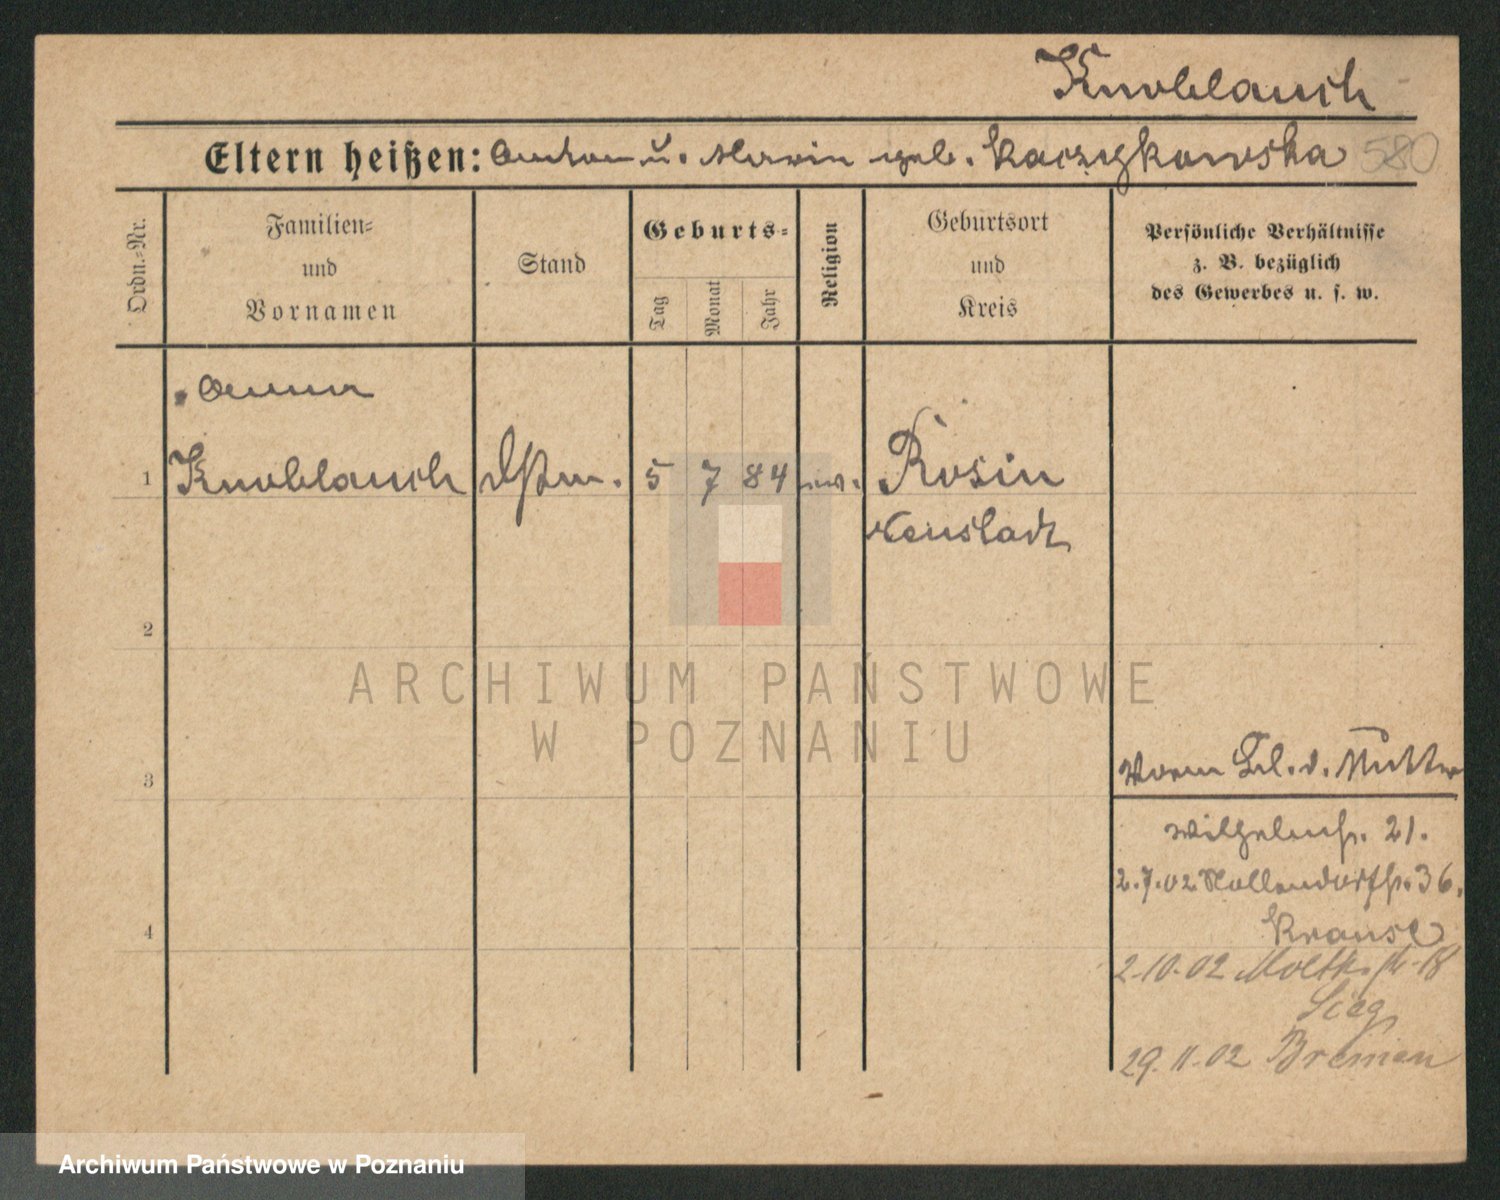 Knoblauch
Eltern heißen: Anton u. Marie geb. Kaczykowska 580
Ordn.-Nr.
Familien-
und
Vornamen
Stand
Geburts-
Tag
Monat
Jahr
Religion
Geburtsort
und
Kreis
Persönliche Verhältnisse
z. B. bezüglich
des Gewerbes u. s. w.
Anna
1 Knoblauch 5 7 84 Rosin
Neustadt
2
ARCHIWUM PAŃSTWOWE
W POZNANIU
3
v. Mutter
Wilhelmstr. 21.
2.7.02 Nollendorfstr. 36.
Krause
4
2.10.02 Moltkestr. 18
Sieg
29.11.02 Bremen
Archiwum Państwowe w Poznaniu